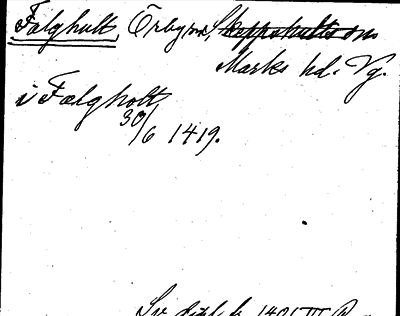 Falghult, Örby sn, Skeppshults sn
Marks hd. Vg.
i Fælgholt
30/6 1419.
Sv. dipl. fr. 1401 III